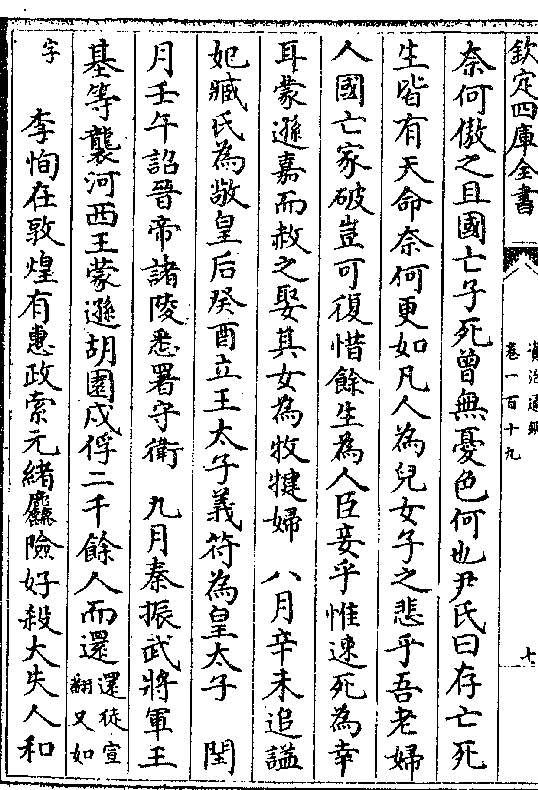 欽定四庫全書
資治通鑑
卷一百十九
七
奈何傲之且國亡子死曾無憂色何也尹氏曰存亡死
生皆有天命奈何更如凡人為兒女子之悲乎吾老婦
人國亡家破豈可復惜餘生為人臣妾乎惟速死為幸
耳蒙遜嘉而赦之娶其女為牧犍婦 八月辛未追諡
妃臧氏為敬皇后癸酉立王太子義符為皇太子 閏
月壬午詔晉帝諸陵悉署守衛 九月秦振武將軍王
基等襲河西王蒙遜胡園戍俘二千餘人而還還徒宣
翻又如
字 李恂在敦煌有惠政索元緒麤險好殺大失人和